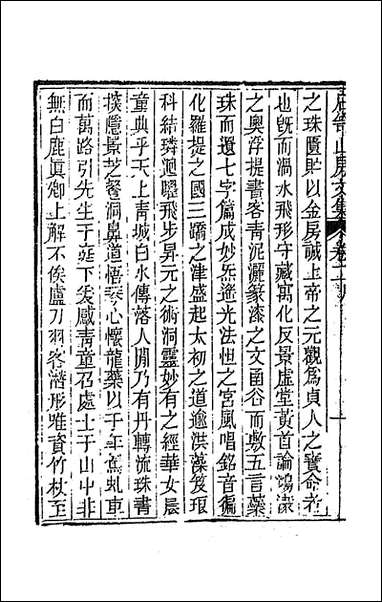 石笥山房文集 卷二
之珠匱貯以金房誠上帝之元觀為貞人之寶命者
也旣而渦水飛形守藏寓化反景虛堂黃首論鴻濛
之奧浮提書客青泥灑篆漆之文函谷而敷五言蘂
珠而遺七字篇成妙炁遂光法怛之宮風唱銘音徧
化羅提之國三蹻之津盛起太初之道遂洪藻笈琅
科結璘迴曜飛步昇元之術洞靈妙有之經華女晨
童典乎天上青城白水傳落人間乃有丹轉流珠書
撲隱景芝馨洞鼻道悟琴心懷龍藥以千年駕虬車
而萬路引先生于庭下爰感青童召處士于山中非
無白鹿眞卿上解不俟盧刀羽客潛形雅資竹杖至